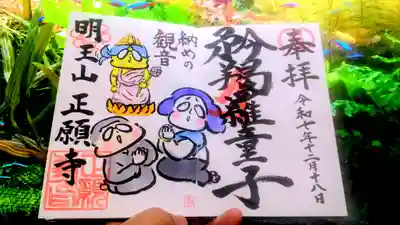 奉拝
令和七年十二月十八日
矜羯羅童子
納めの
観音
明王山 正願寺